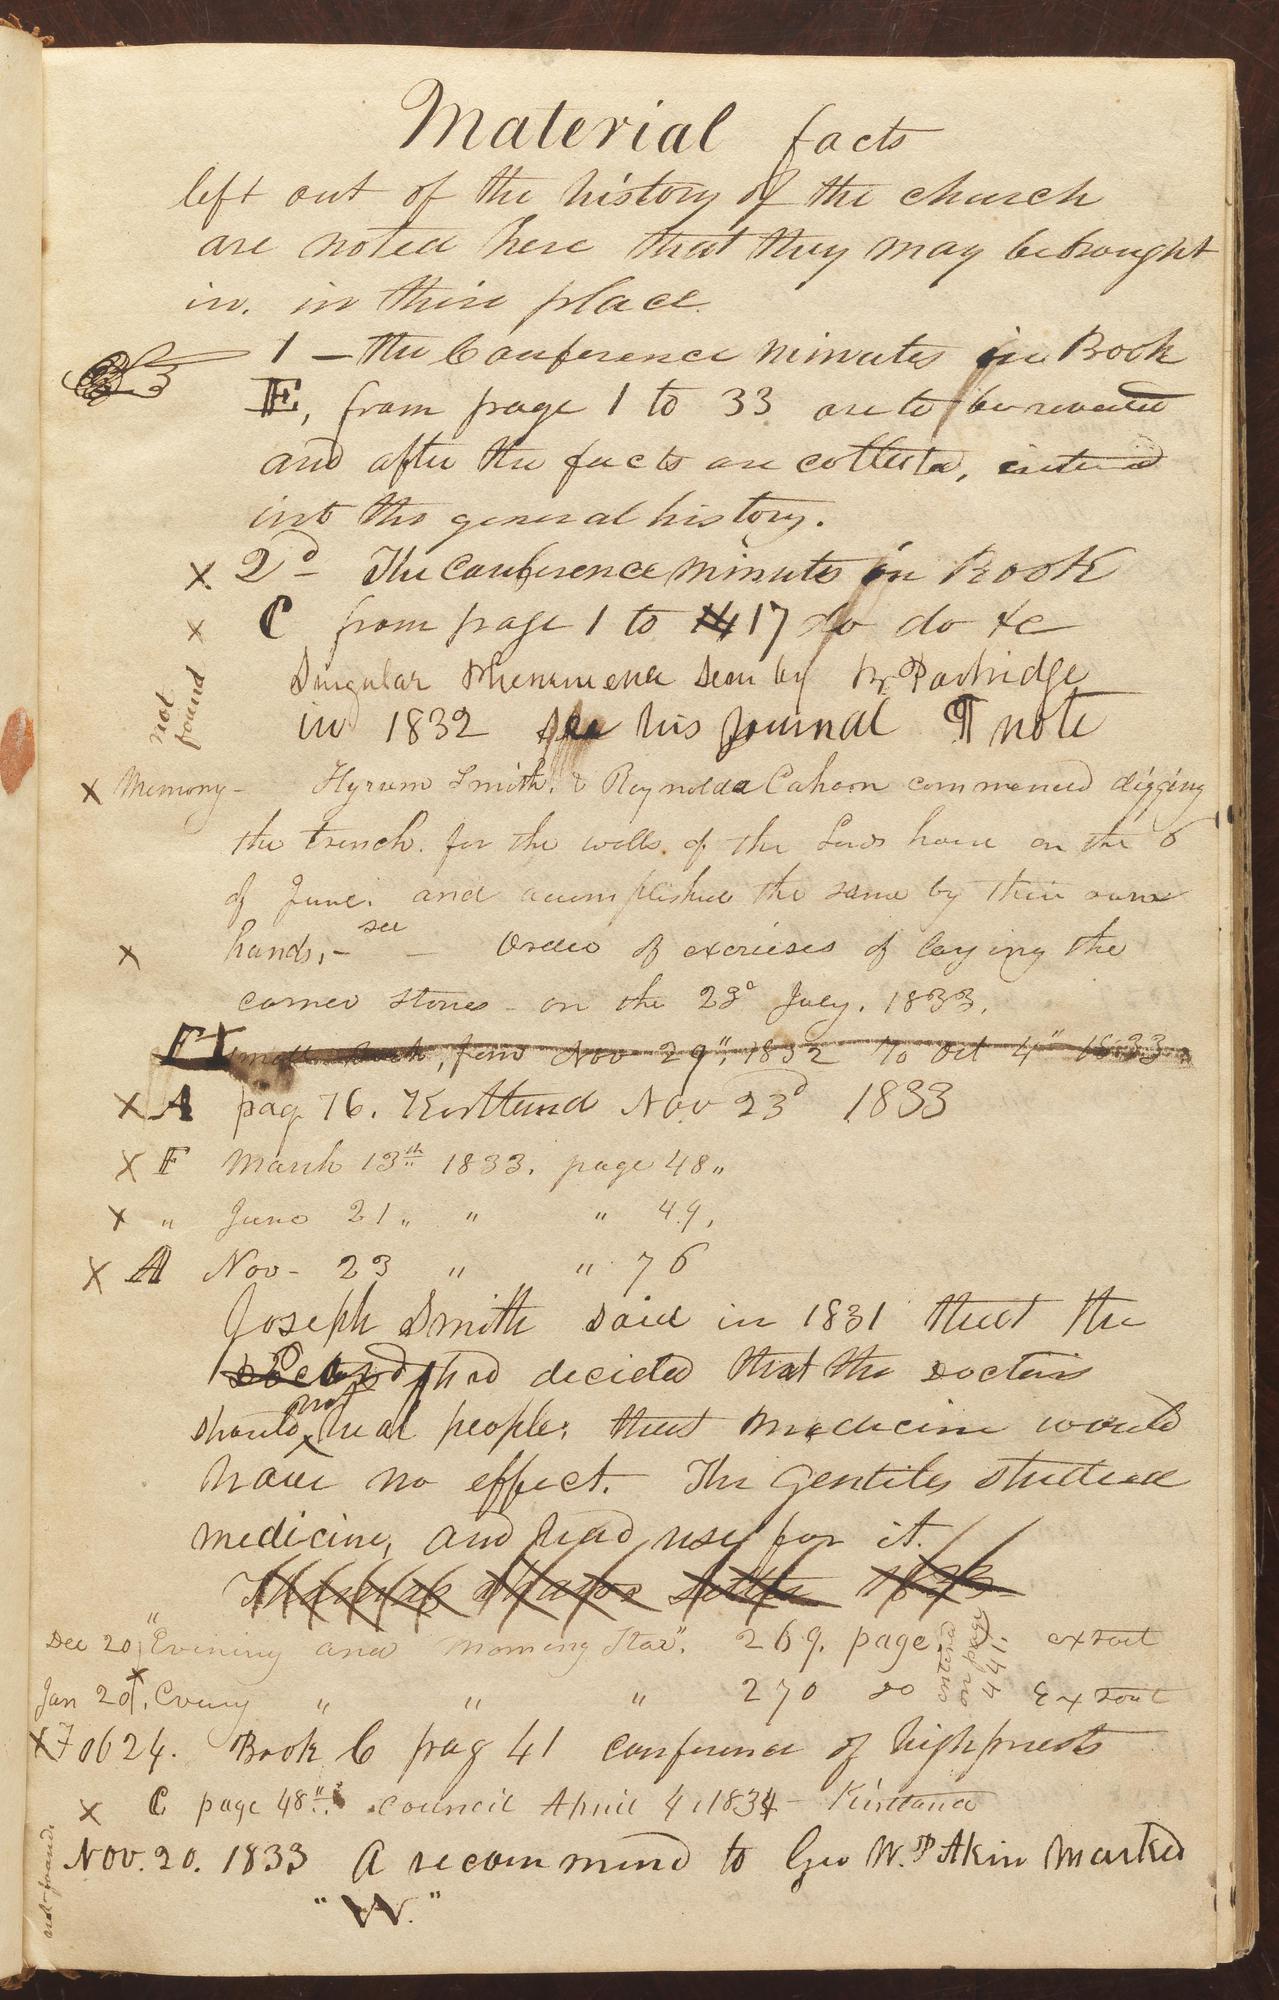 Material facts
left out of the history of the church
are noted here that they may be brought
in. in their place.
1 — the Conference minutes in Book
E, from page 1 to 33 are to be revised
and after the facts are collected, entered
into the general history.
x 2d The Conference minutes in Book
x C from page 1 to 14 17 do do &c
not found
Singular Phenomena seen by Br Partridge
in 1832 see his journal ¶ note
x Memory — Hyrum Smith, & Reynolds Cahoon commenced digging
the trench. for the walls of the Lords house on the 6
of June. and accomplished the same by their own
x hands, — see — Order of exercises of laying the
corner stones — on the 23d July. 1833.
F small book, from Nov 29", 1832 to Oct 4" 1833
x A pag 76. Kirtland Nov 23d 1833
x F March 13th 1833. page 48 "
x " June 21 " " " 49,
x A Nov - 23 " " 76
Joseph Smith said in 1831 that the
Lord had decided that the doctors
should not heal people; that medicine would
have no effect. The Gentiles studied
medicine, and had use for it.
Letter
Dec 20, "Evening and Morning Star". 269. page. extract
entered on page 441.
Jan 20. Eveng " " " 270 do Extract
x Feb 24. Book C pag 41 conference of high priests
x C page 48" council April 4, 1834 — Kirtland
not found
Nov. 20. 1833 A recommend to Geo W. P Akin Marked
"W."